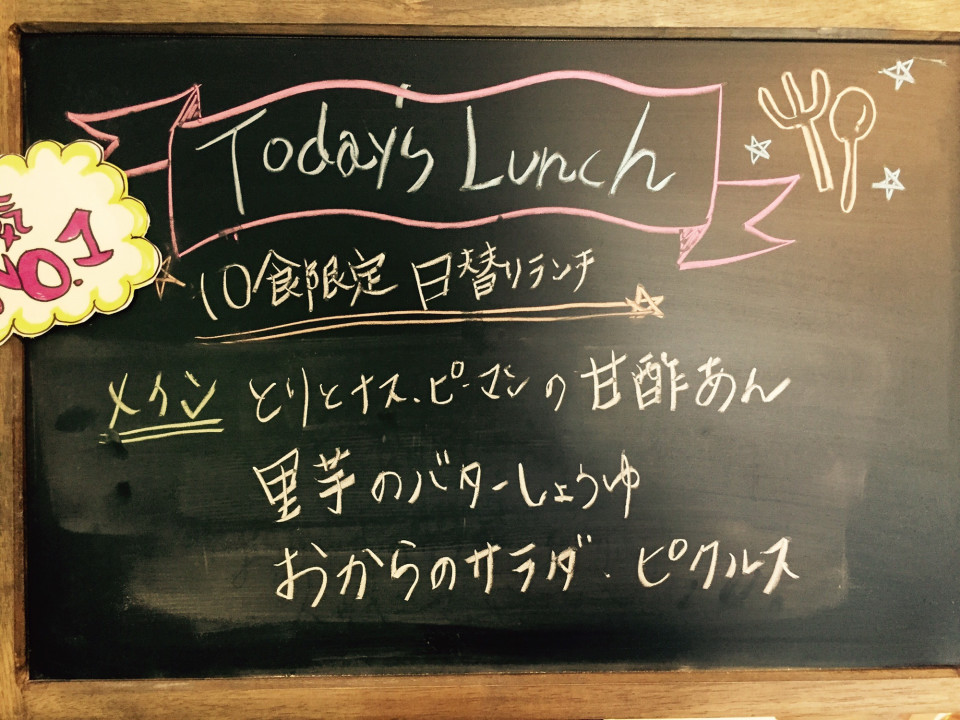 Today's Lunch
NO.1
10食限定 日替りランチ
メイン とりとナス、ピーマンの甘酢あん
里芋のバターしょうゆ
おからのサラダ・ピクルス